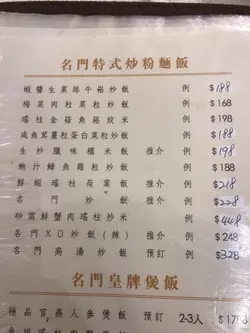 名門特式炒粉麵飯
蝦醬生菜絲牛崧炒飯 例 $188
梅菜肉粒菜粒炒飯 例 $168
瑤柱金菇魚崧炆米 例 $198
鹹魚茸薑粒蛋白菜粒炒飯 例 $188
生炒臘味糯米飯 推介 例 $198
鮑汁鱆魚雞粒炒飯 例 $188
鮮蝦瑤柱荷葉飯 推介 例 $218
名門炒飯 推介 例 $228
砂窩鮮蟹肉瑤柱炒米 例 $448
名門XO炒飯(辣) 推介 例 $248
名門高湯炒飯 預訂 例 $328
名門皇牌煲飯
極品官燕人參煲飯 預訂 2-3人